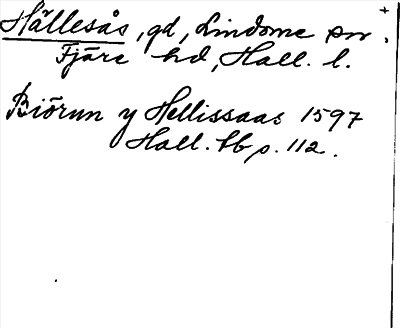 Hällesås, gd, Lindome sn.
Fjäre hd, Hall. l.
Biörun y Hellissaas 1597
Hall. tb p. 112.